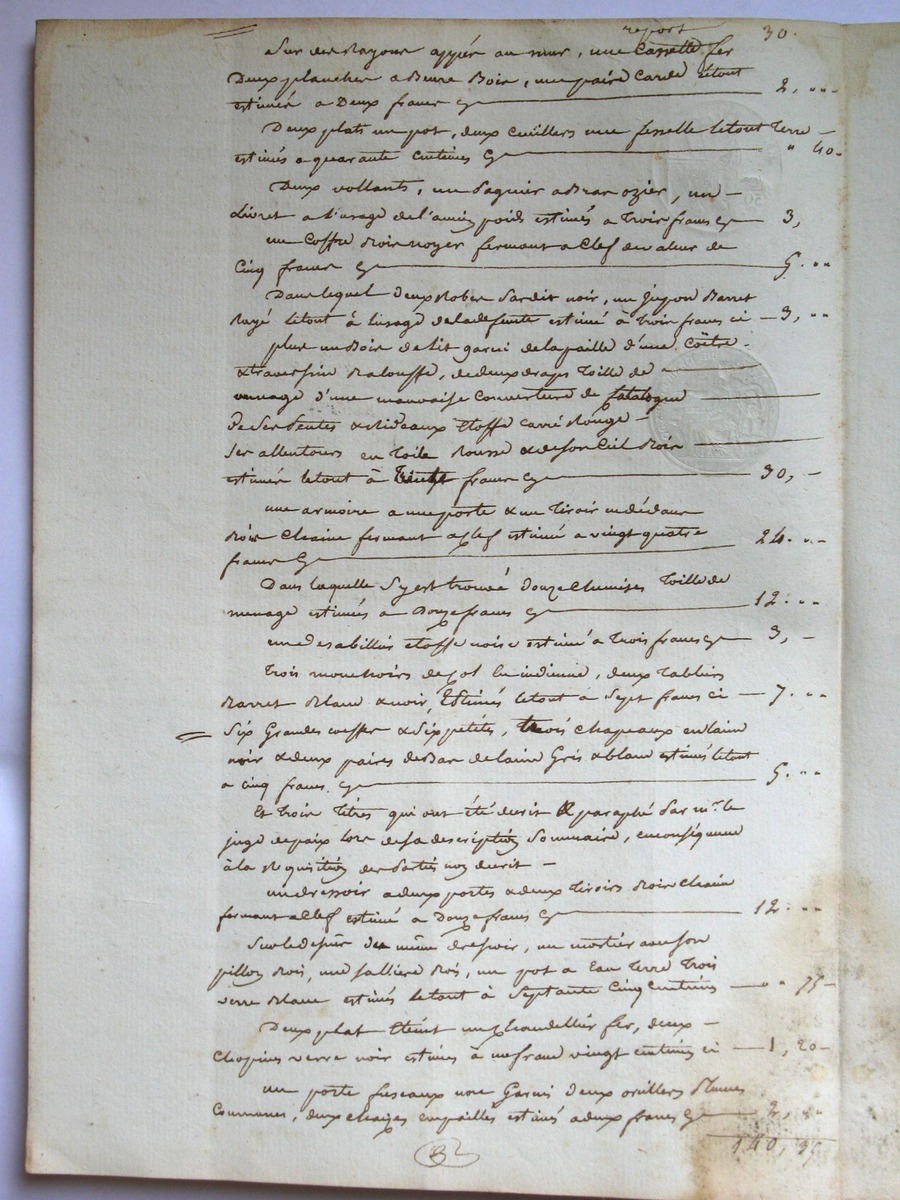 report 30.
Sur des Rayons appuié au mur, une Cassette fer
Deux planches a Beure Bois, une paire Carde letout
estimés a Deux francs cy 2, ..
Deux plats un pot, deux cuillers une fesselle letout Terre
estimés a quarante centimes cy " 40
Deux vollants, un Pagnier a Bras ozier, un
Livret a l'usage de l'ancien poids estimés a Trois francs cy 3,
un Coffre Bois noyer fermant a Clef de valeur de
Cinq francs cy 5. ..
Dans lequel deux Robes Sardit noir, un Jupon Barret
Rayé letout à l'usage de la defunte estimé à Trois francs ci 3, ..
plus un Bois de Lit garni de la paille d'une Coëtre
& traversin Balouffe, de deux draps Toille de
mennage d'une mauvaise Couverture de Catalogue
de Ses Pentes & Rideaux Etoffe carré Rouge
Ses allentours en Toile Rousse & de son Ciel Bois
estimés letout à Trente francs cy 30,
une armoire a une porte & un Tiroir en dedans
Bois Chaine fermant a Clef estimé a vingt quatre
francs Cy 24. ..
Dans laquelle S'y est trouvé douze Chemises Toille de
menage estimés a Douze francs cy 12. ..
un desabilliés etoffe noire estimé a Trois francs cy 3,
Trois mouchoirs de Col en indienne, deux Tabliers
Barret Blanc & noir, Estimés letout a Sept francs ci 7. ..
Six Grandes coeffes & Six petites, trois Chapeaux en laine
noir & deux paires de Bas de laine Gris & blanc estimés letout
a cinq francs. cy 5. ..
Et Trois Titres qui ont été decrit & paraphé Par mr. le
juge de paix lors de sa description Sommaire, en conséquence
à la Requisition des Parties non decrit
un dressoir a deux portes & deux Tiroirs Bois Chaine
fermant a Clef estimé a Douze francs Cy 12. ..
Sur le dessus du même dressoir, un mortier avec son
pillon Bois, une Salliere Bois, un pot a Eau Terre Trois
verre Blanc estimés letout à Septante Cinq Centimes " 75
Deux plat Eteint un Chandellier fer, deux
Chopines verre noir estimés à un franc vingt centimes ci 1, 20
un porte fuseaux non Garni deux orillers Plumes
Communes, deux Chaizes empaillés estimés a deux francs cy 2, ..
140, 35